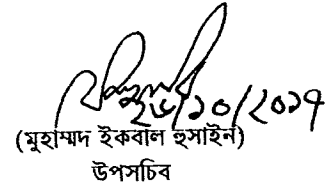 ২৮/১০/২০১৭
(মুহাম্মদ ইকবাল হুসাইন)
উপসচিব